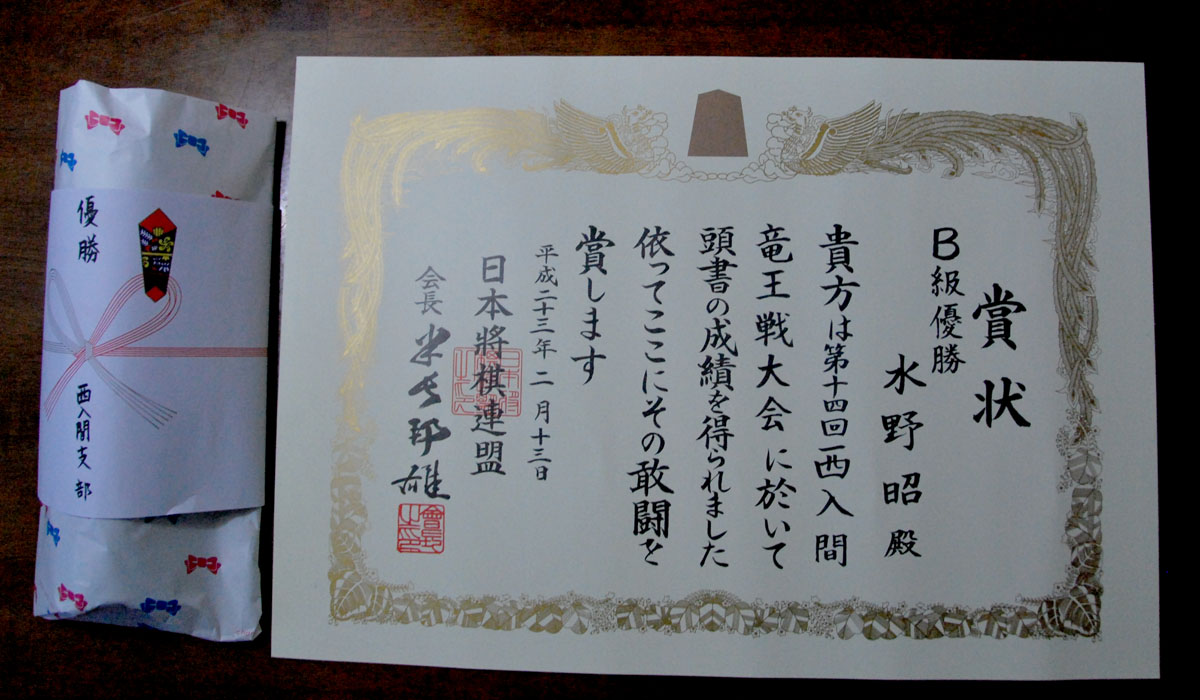 賞状
B級優勝
水野昭殿
貴方は第十四回西入間
竜王戦大会に於いて
頭書の成績を得られました
依ってここにその敢闘を
賞します
平成二十三年二月十三日
日本將棋連盟
会長 米長邦雄
會長之印
優勝
西入間支部